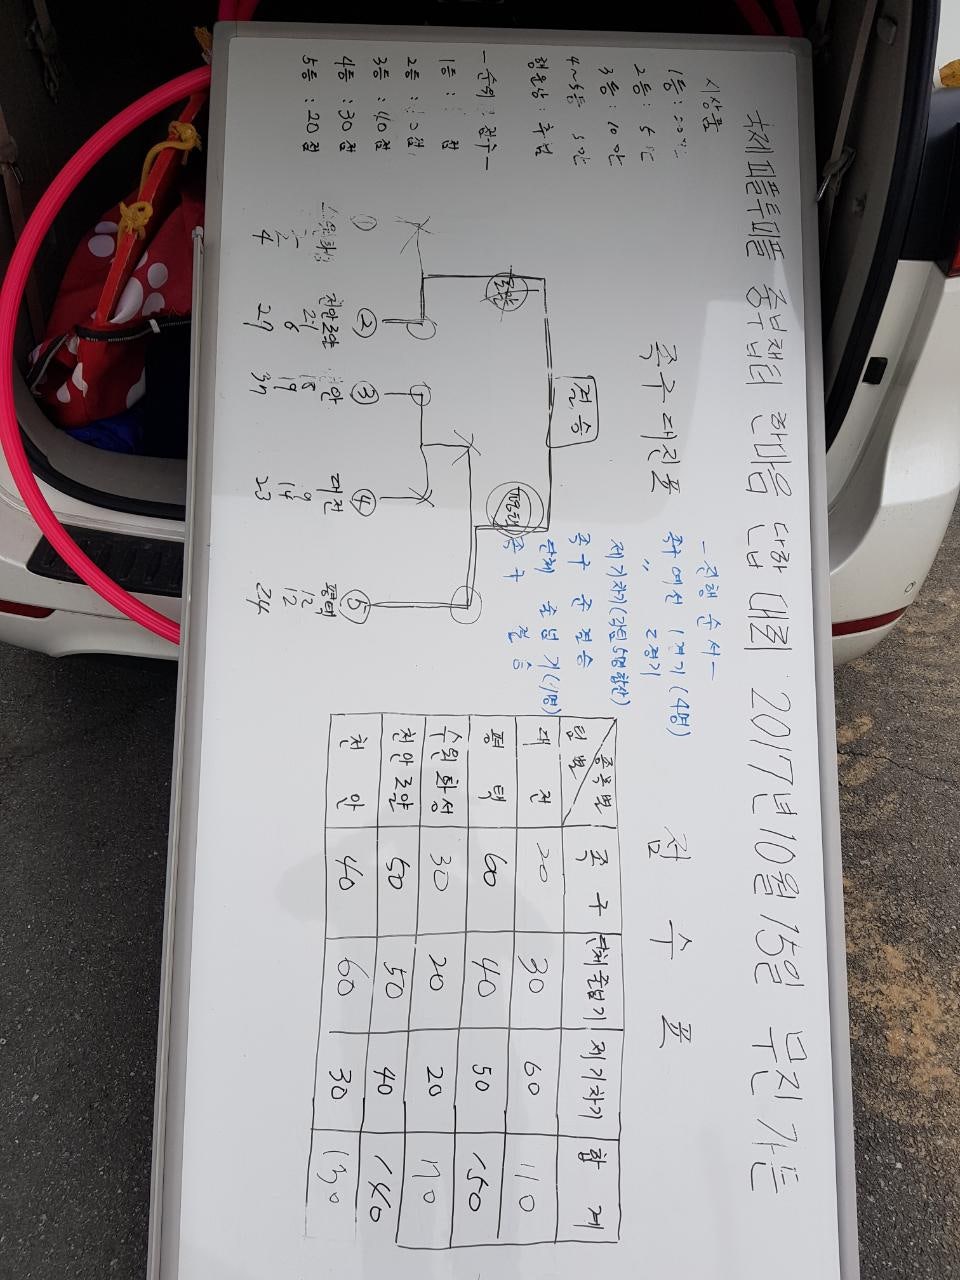 국제피플투피플 중부챕터 한마음 단합 대회 2017년 10월 15일 무진가든
시상품
1등 :
2등 : 5
3등 : 10만
4~5등 5만
행운상 : 추첨
- 순위 : 점수 -
1등 : 점
2등 :
3등 : 40점
4등 : 30점
5등 : 20점
족구 대진표
결승
평택
①
4
②
천안호약
21
6
27
③
천안
18
19
37
④
대전
9
14
23
⑤
평택
12
12
24
- 진행 순서 -
족구 예선 1경기 (4명)
〃 2경기
제기차기 (5명 합산)
족구 준결승
단체 줄넘기
족구 결승
점수표
종목별
팀별
족구
단체줄넘기
제기차기
합계
대전 20 30 60 110
평택 60 40 50 150
수원화성 30 20 20
천안호약 50 50 40 140
천안 40 60 30 130